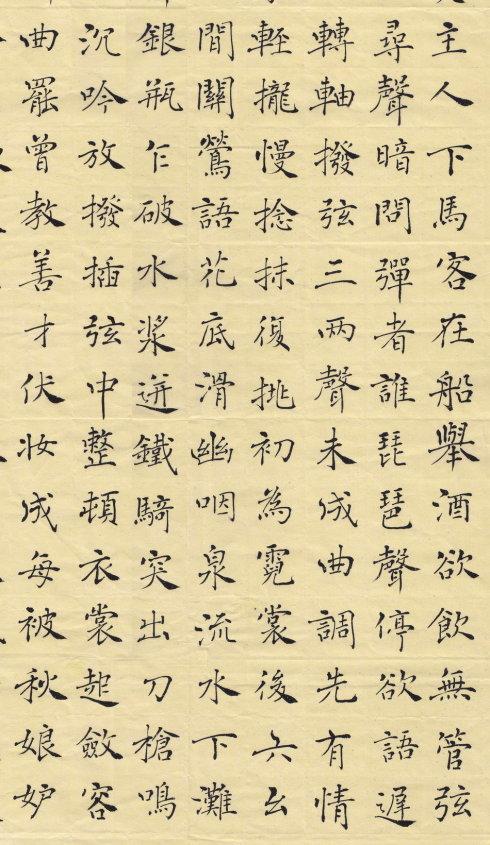 主人下馬客在船舉酒欲飲無管弦
尋聲暗問彈者誰琵琶聲停欲語遲
轉軸撥弦三兩聲未成曲調先有情
輕攏慢捻抹復挑初為霓裳後六幺
間關鶯語花底滑幽咽泉流水下灘
銀瓶乍破水漿迸鐵騎突出刀槍鳴
沉吟放撥插弦中整頓衣裳起斂容
曲罷曾教善才伏妝成每被秋娘妒